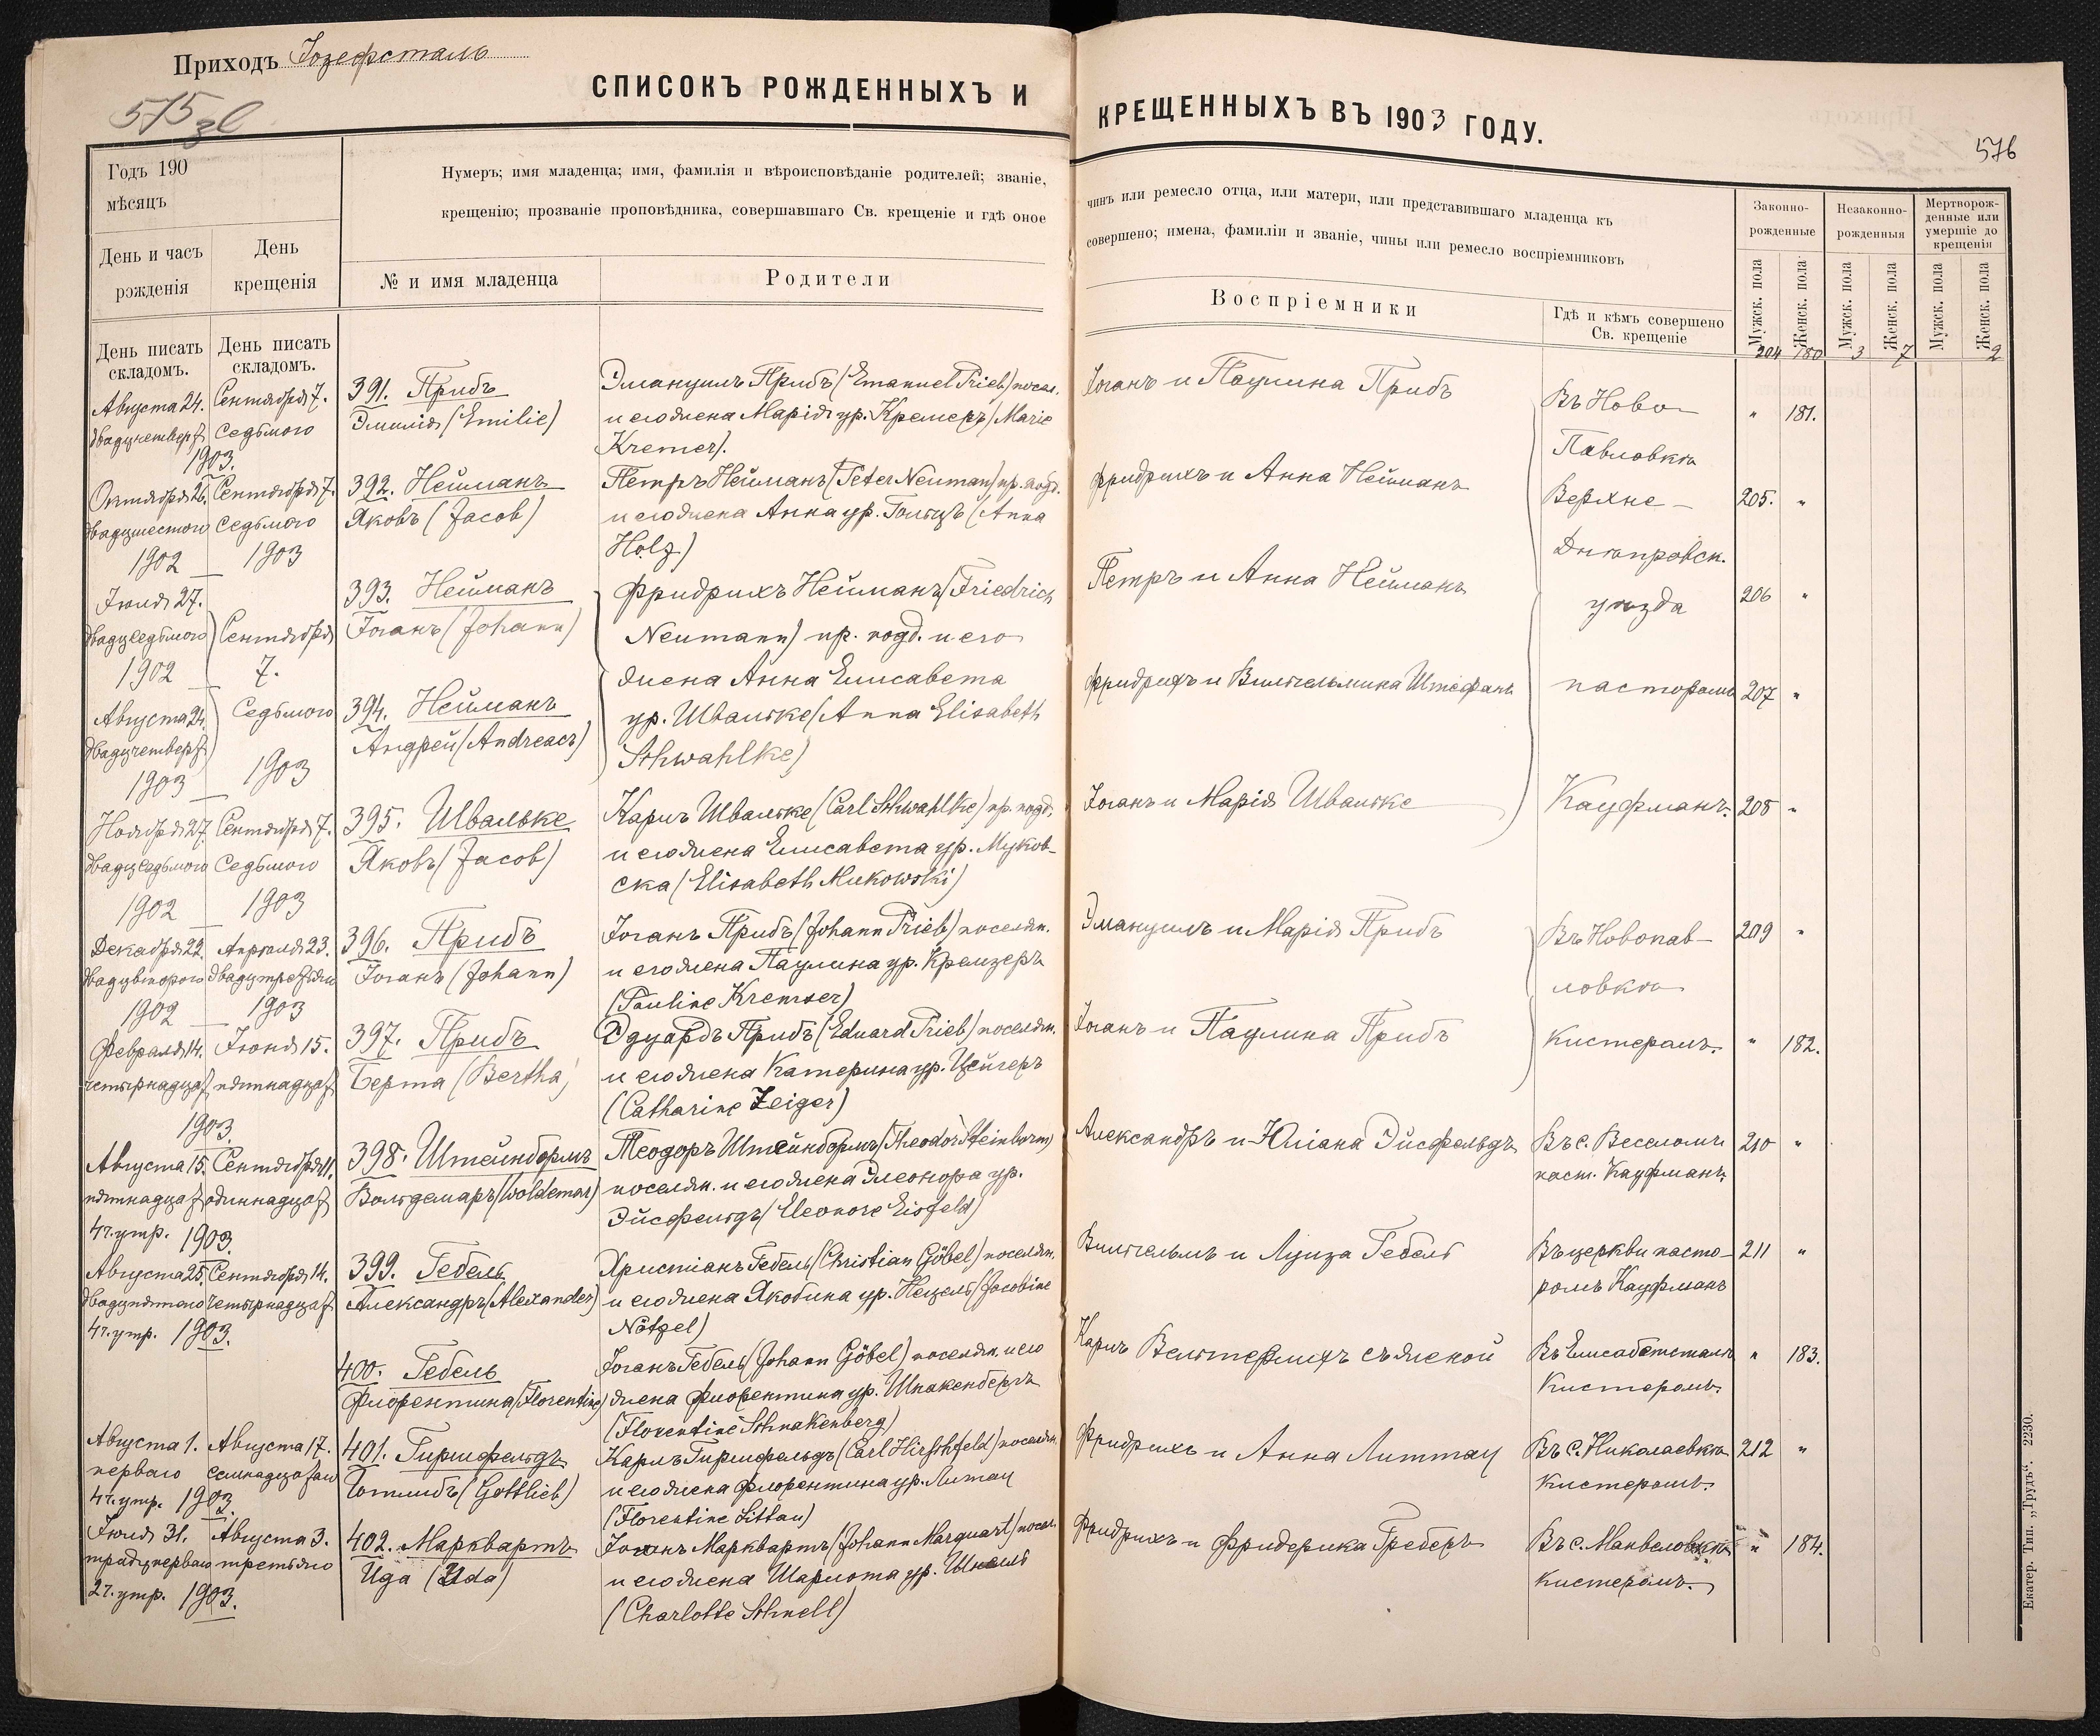 Приходъ Іозефсталь
575
СПИСОКЪ РОЖДЕННЫХЪ И
КРЕЩЕННЫХЪ ВЪ 1903 ГОДУ.
576
Годъ 190
мѣсяцъ
День и часъ
рожденія
День
крещенія
Нумеръ; имя младенца; имя, фамилія и вѣроисповѣданіе родителей; званіе,
крещенію; прозваніе проповѣдника, совершавшаго Св. крещеніе и гдѣ оное
чинъ или ремесло отца, или матери, или представившаго младенца къ
совершено; имена, фамиліи и званіе, чины или ремесло воспріемниковъ
№ и имя младенца
Родители
Воспріемники
Гдѣ и кѣмъ совершено
Св. крещеніе
Законно-
рожденные
Незаконно-
рожденныя
Мертворож-
денные или
умершіе до
крещенія
Мужск. пола
Женск. пола
Мужск. пола
Женск. пола
Мужск. пола
Женск. пола
День писать
складомъ.
День писать
складомъ.
204 180 3 7 2
Августа 24. Сентября 7.
двадцчетверт седьмого
1903.
391. Прибъ
Эмилія (Emilie)
Эмануилъ Прибъ (Emanuel Prieb) посел.
и его жена Марія ур. Кремеръ (Marie
Kremer).
Іоганъ и Паулина Прибъ
Въ Ново-
Павловкѣ
" 181.
Октября 26. Сентября 7.
двадцшестого седьмого
1902 1903
392. Нейманъ
Яковъ (Jacob)
Петръ Нейманъ (Peter Neuman) пр. подд.
и его жена Анна ур. Гольцъ (Anna
Holz)
Фридрихъ и Анна Нейманъ
Верхне-
Днѣпровск.
205. "
Іюля 27.
двадцседьмого
1902
Сентября
7.
393. Нейманъ
Іоганъ (Johann)
Фридрихъ Нейманъ (Friedrich
Neumann) пр. подд. и его
жена Анна Елисавета
ур. Швальке (Anna Elisabeth
Schwahlke)
Петръ и Анна Нейманъ
уѣзда
206 "
Августа 24.
двадцчетверт
1903
Седьмого
1903
394. Нейманъ
Андрей (Andreas)
Фридрихъ и Вильгельмина Штефанъ
пасторомъ
207 "
Ноября 27. Сентября 7.
двадцседьмого седьмого
1902 1903
395. Швальке
Яковъ (Jacob)
Карлъ Швальке (Carl Schwahlke) пр. подд.
и его жена Елисавета ур. Муков-
ска (Elisabeth Mukowski)
Іоганъ и Марія Швальке
Кауфманъ.
208 "
Декабря 22. Апрѣля 23.
двадцвторого двадцтретьяго
1902 1903
396. Прибъ
Іоганъ (Johann)
Іоганъ Прибъ (Johann Prieb) поселян.
и его жена Паулина ур. Кремзеръ
(Pauline Kremser)
Эмануилъ и Марія Прибъ
Въ Новопав-
ловкѣ
209 "
Февраля 14. Іюня 15.
четырнадцат пятнадцат
1903.
397. Прибъ
Берта (Bertha)
Эдуардъ Прибъ (Eduard Prieb) поселян.
и его жена Катерина ур. Цейгеръ
(Catharine Zeiger)
Іоганъ и Паулина Прибъ
кистеромъ.
" 182.
Августа 15. Сентября 11.
пятнадцат одиннадцат
4 ч. утр. 1903.
398. Штейнбормъ
Вольдемаръ (Woldemar)
Теодоръ Штейнбормъ (Theodor Steinborm)
поселян. и его жена Элеонора ур.
Эйсфельдъ (Eleonore Eisfeld)
Александръ и Юліана Эйсфельдъ
Въ с. Веселомъ
паст. Кауфманъ.
210 "
Августа 25. Сентября 14.
двадцпятаго четырнадцат
4 ч. утр. 1903.
399. Гебель
Александръ (Alexander)
Христіанъ Гебель (Christian Göbel) поселян.
и его жена Якобина ур. Нецель (Jacobine
Nötzel)
Вильгельмъ и Луиза Гебель
Въ церкви пасто-
ромъ Кауфманъ
211 "
400. Гебель
Флорентина (Florentine)
Іоганъ Гебель (Johann Göbel) поселян. и его
жена Флорентина ур. Шнакенбергъ
(Florentine Schnakenberg)
Карлъ съ женой
Въ Елисабетталѣ
Кистеромъ.
" 183.
Августа 1. Августа 17.
перваго семнадцатаго
4 ч. утр. 1903.
401. Гиршфельдъ
Готлибъ (Gottlieb)
Карлъ Гиршфельдъ (Carl Hirschfeld) поселян.
и его жена Флорентина ур. Литау
(Florentine Littau)
Фридрихъ и Анна Литтау
Въ с. Николаевкѣ
кистеромъ.
212 "
Іюля 31. Августа 3.
тридцперваго третьяго
2 ч. утр. 1903.
402. Марквартъ
Ида (Ida)
Іоганъ Марквартъ (Johann Marquart) посел.
и его жена Шарлота ур. Шнель
(Charlotte Schnell)
Фридрихъ и Фридерика Греберъ
Въ с. Манвеловкѣ
кистеромъ.
" 184.
Екатер. Тип. „Трудъ“. 2230.